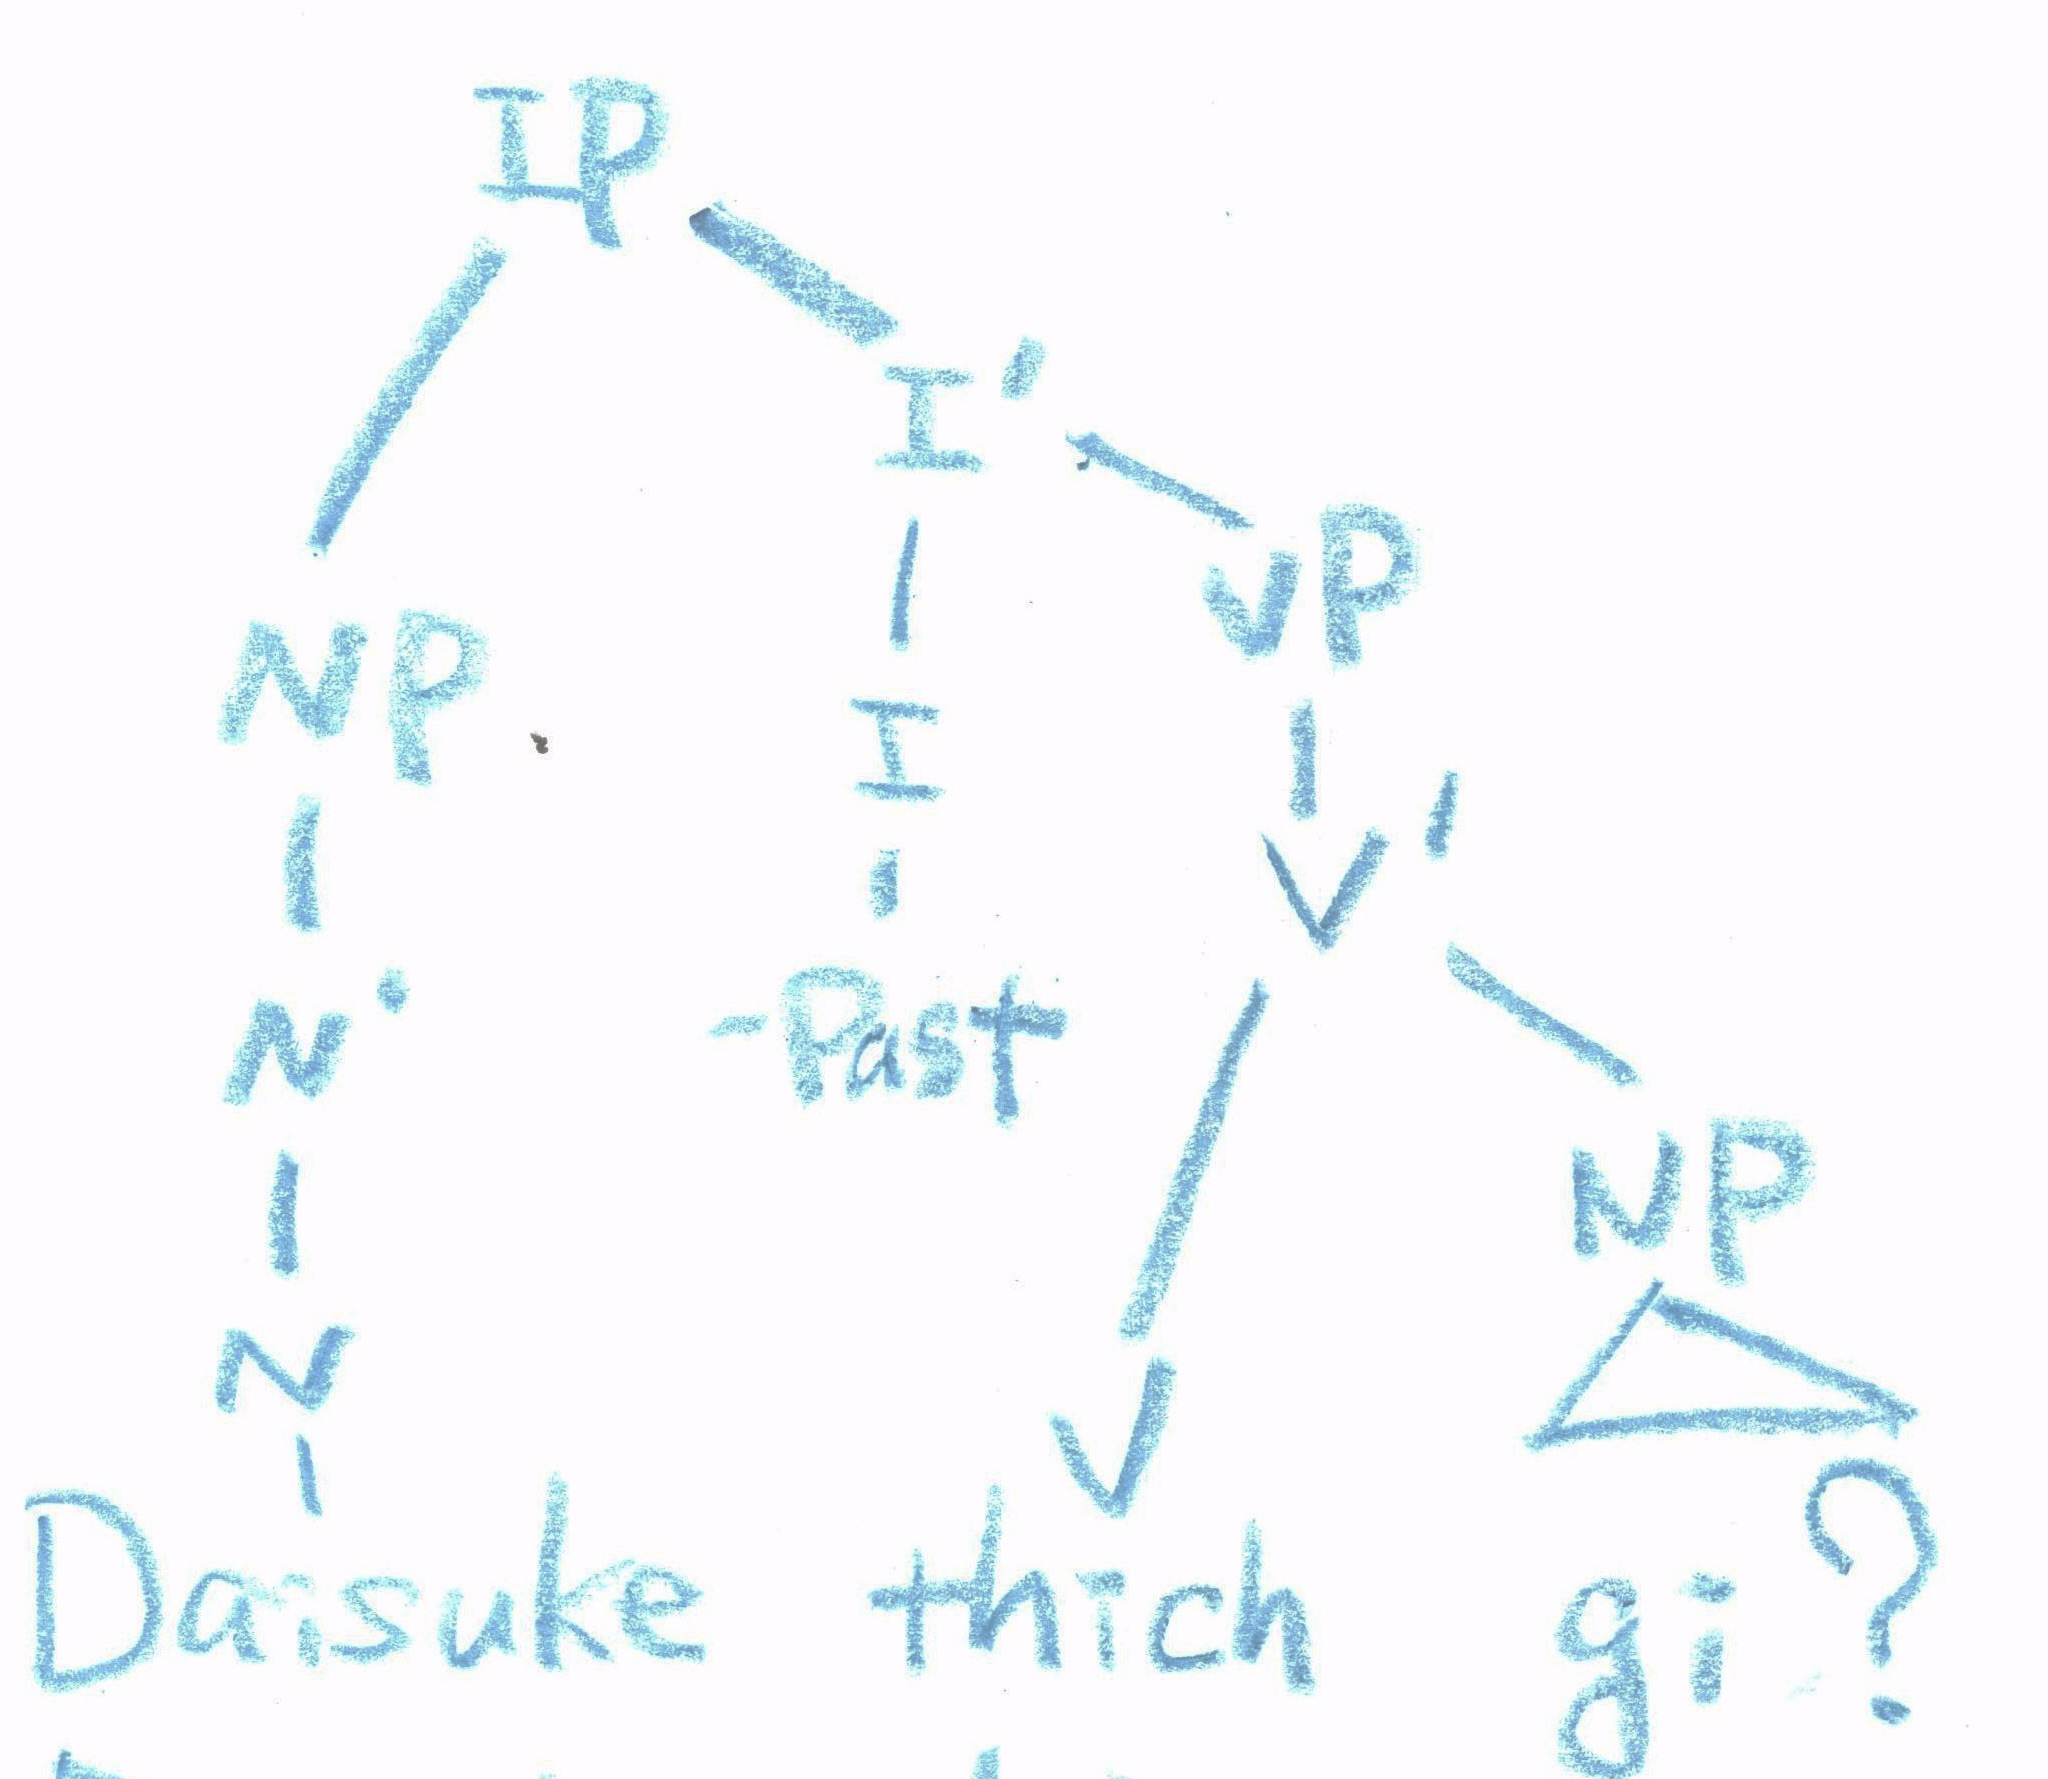 IP
I'
VP
NP I
V'
N' -Past
NP
N V
Daisuke thich gi?